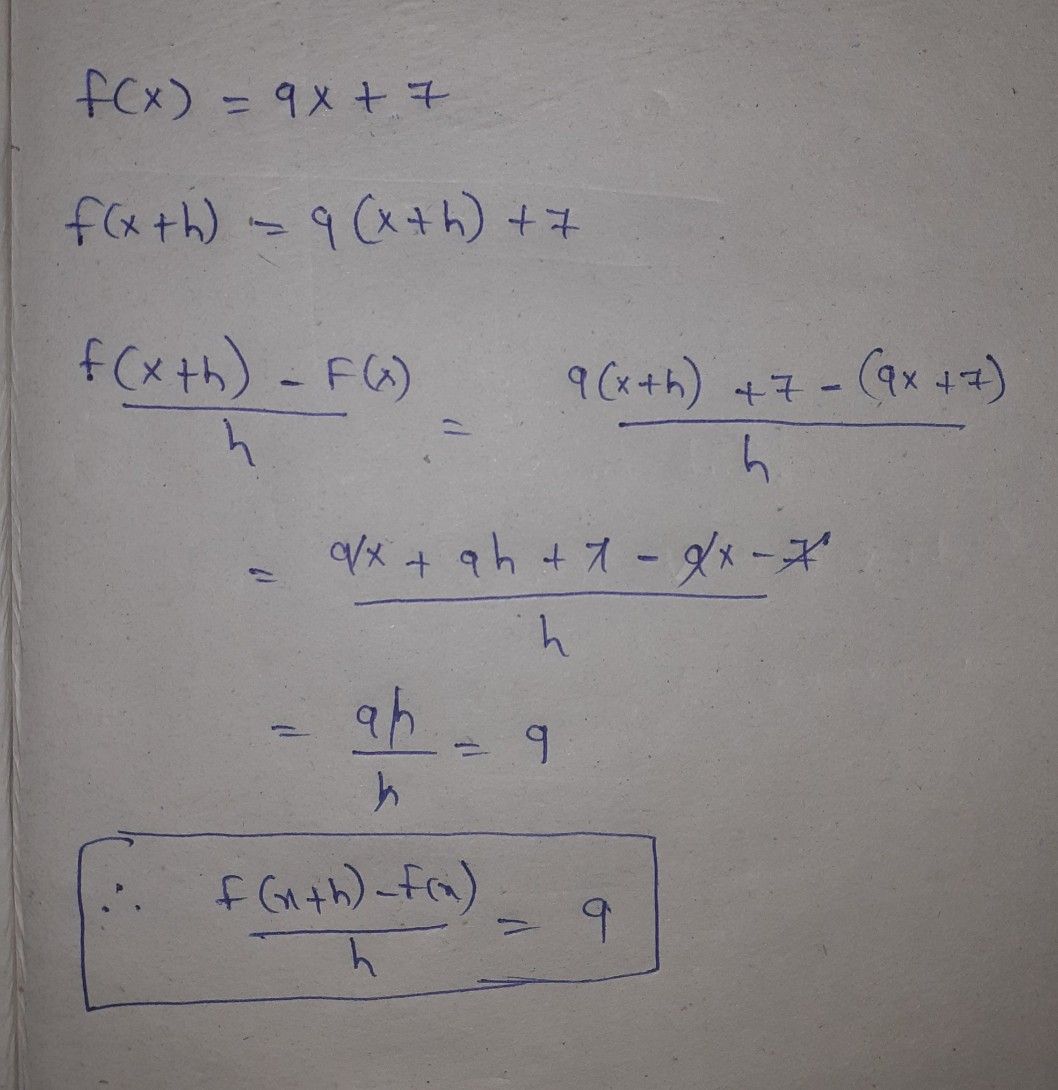 f(x) = 9x + 7
f(x+h) = 9(x+h) + 7
f(x+h) - F(x) / h = 9(x+h) + 7 - (9x + 7) / h
= 9x + 9h + 7 - 9x - 7 / h
= 9h / h = 9
∴ f(x+h) - f(x) / h = 9